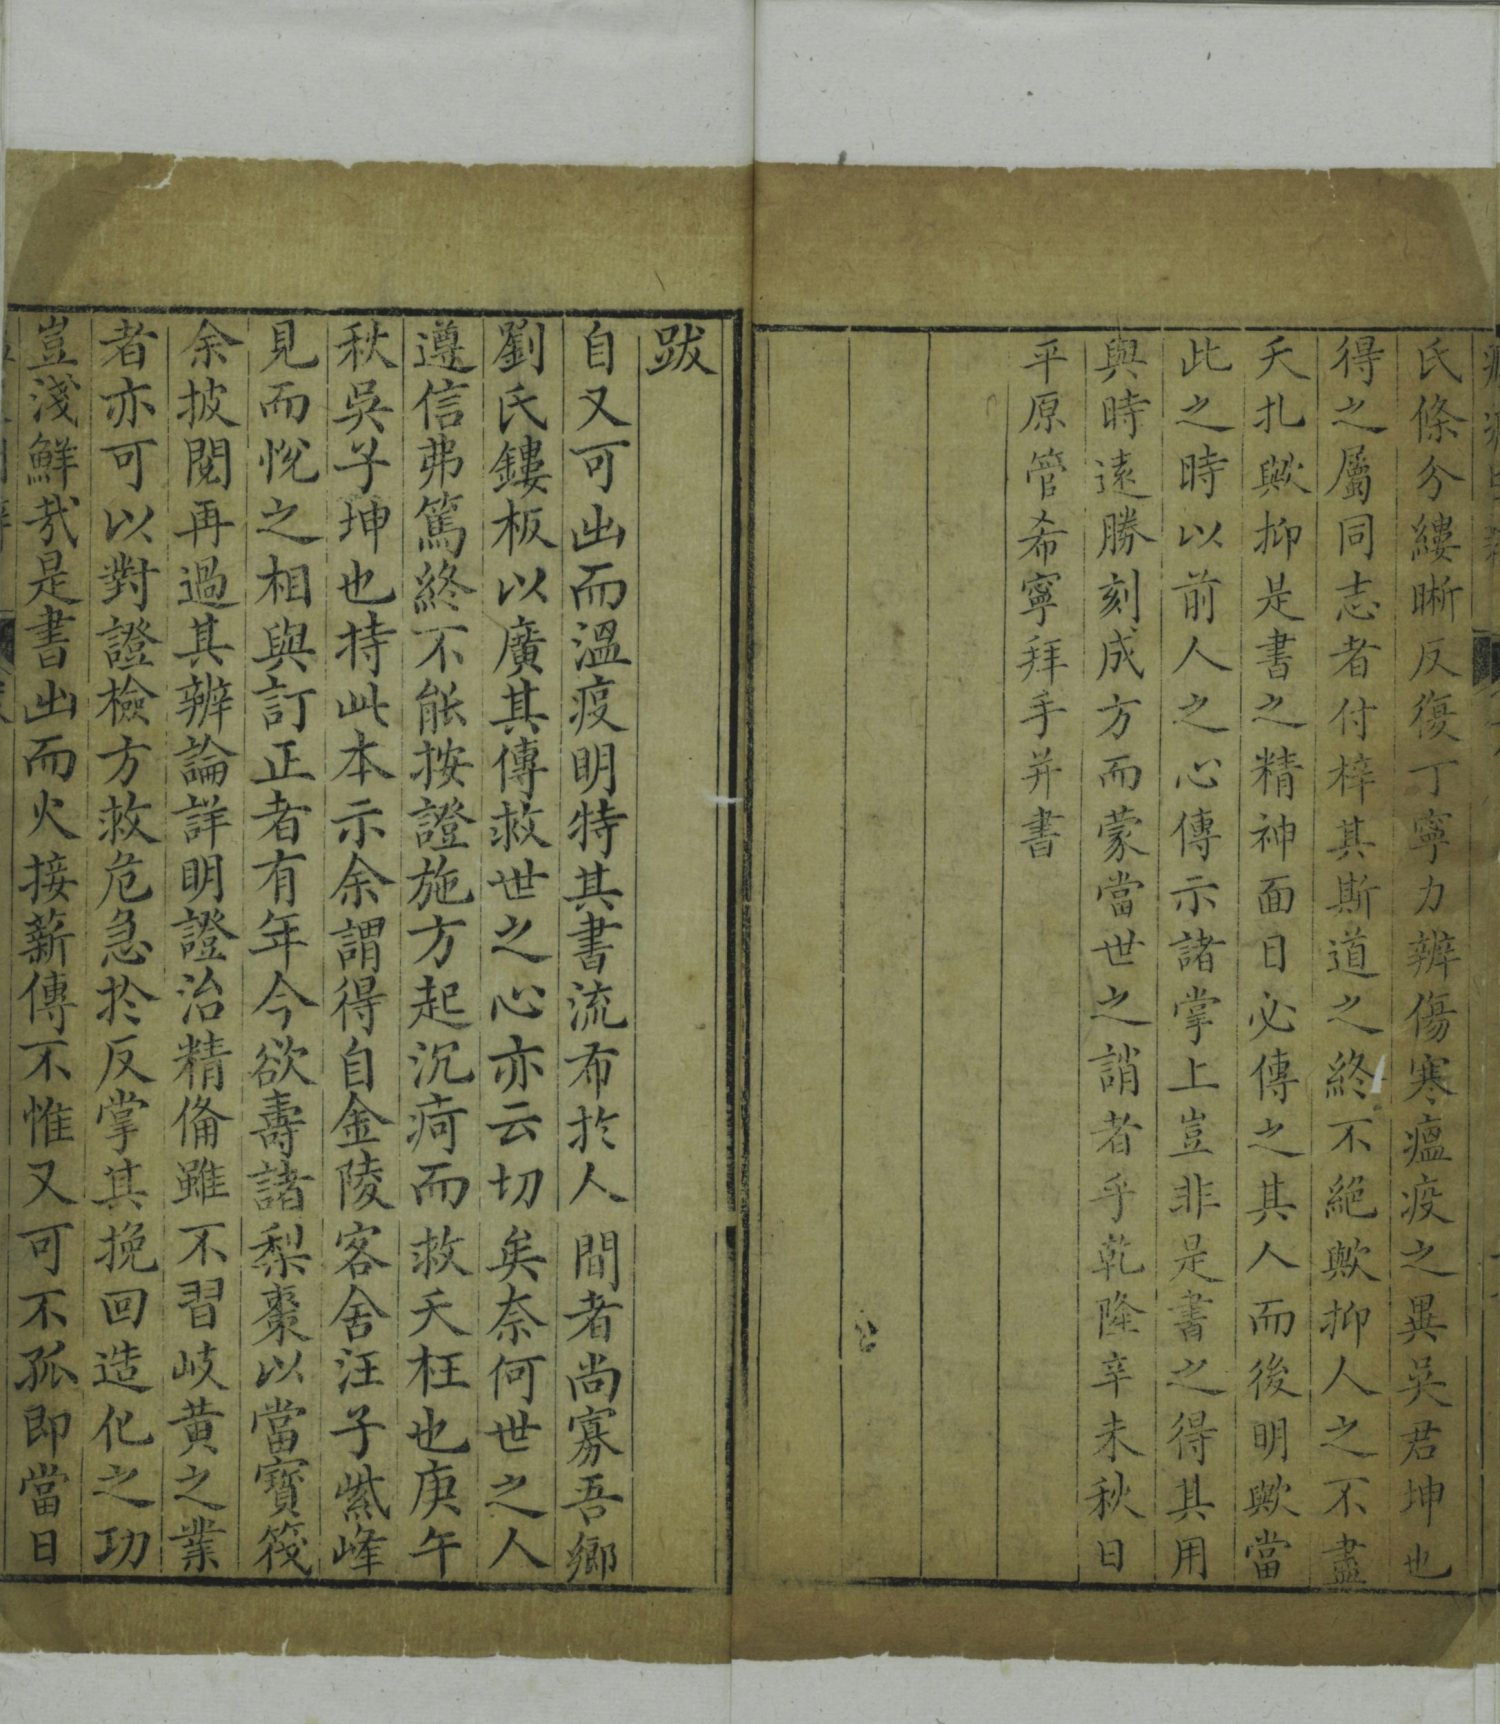 氏條分縷晰反復丁寧力辨傷寒瘟疫之異吳君坤也
得之屬同志者付梓其斯道之終不絕歟抑人之不盡
夭扎歟抑是書之精神面目必傳之其人而後明歟當
此之時以前人之心傳示諸掌上豈非是書之得其用
與時遠勝刻成方而蒙當世之誚者乎乾隆辛未秋日
平原管希寧拜手并書
跋
自又可出而溫疫明特其書流布於人間者尚寡吾鄉
劉氏鏤板以廣其傳救世之心亦云切矣奈何世之人
遵信弗篤終不能按證施方起沉疴而救夭枉也庚午
秋吳子坤也持此本示余謂得自金陵客舍汪子紫峰
見而悅之相與訂正者有年今欲壽諸梨棗以當寶筏
余披閱再過其辨論詳明證治精備雖不習岐黃之業
者亦可以對證檢方救危急於反掌其挽回造化之功
豈淺鮮哉是書出而火接薪傳不惟又可不孤即當日